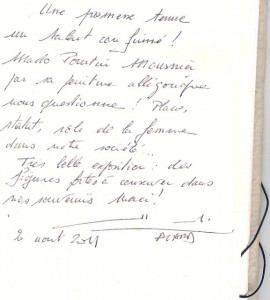 Une promesse tenue
un talent confirmé !
Mado Poutin
par sa peinture allégorique
nous questionne ! Place,
statut, rôle de la femme
dans notre société...
Très belle exposition : des
figures fortes à conserver dans
nos souvenirs Merci !
2 août 2011